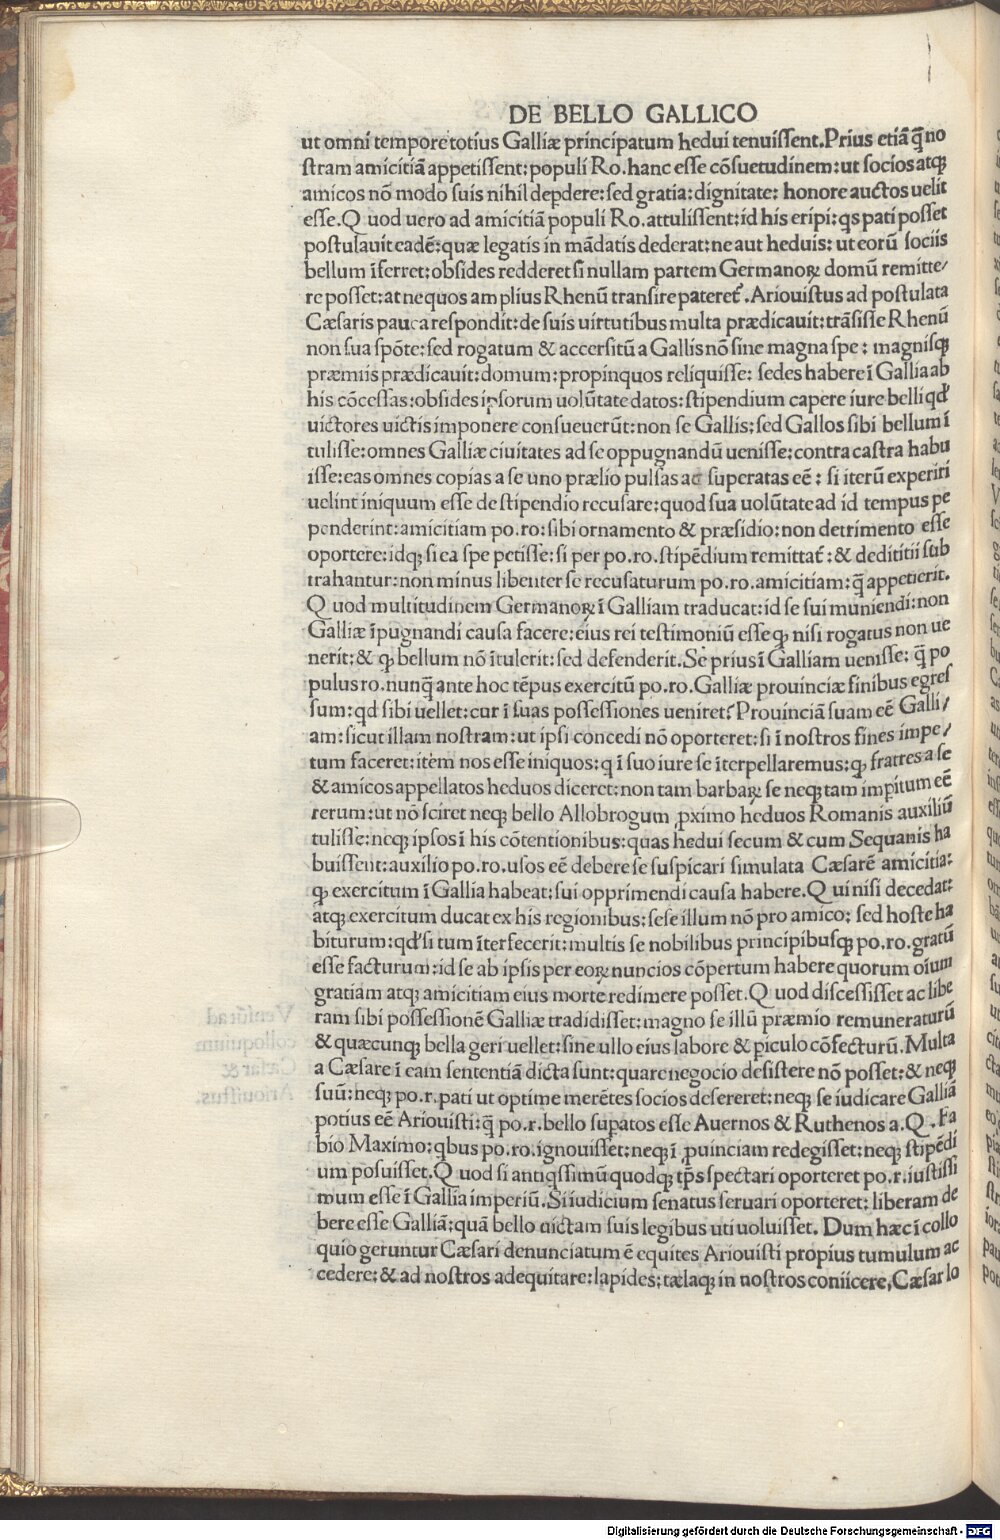 DE BELLO GALLICO
ut omni tempore totius Galliæ principatum hedui tenuiſſent. Prius etiā q̄ no
ſtram amicitiā appetiſſent: populi Ro. hanc eſſe cōſuetudinem: ut ſocios atqꝫ
amicos nō modo ſuis nihil deꝑdere: ſed gratia: dignitate: honore auctos uelit
eſſe. Quod uero ad amicitiā populi Ro. attuliſſent: id his eripi: qs pati poſſet
poſtulauit eadē: quæ legatis in mādatis dederat: ne aut heduis: ut eorū ſociis
bellum īferret: obſides redderet ſi nullam partem Germanoꝝ domū remitte/
re poſſet: at nequos amplius Rhenū tranſire pateret᷑. Ariouiſtus ad poſtulata
Cæſaris pauca reſpondit: de ſuis uirtutibus multa prædicauit: trāſiſſe Rhenū
non ſua ſpōte: ſed rogatum & accerſitū a Gallis nō ſine magna ſpe: magniſqꝫ
præmiis prædicauit: domum: propinquos reliquiſſe: ſedes habere ī Gallia ab
his cōceſſas: obſides ipſorum uolūtate datos: ſtipendium capere iure belli qd'
uictores uictis imponere conſueuerūt: non ſe Gallis: ſed Gallos ſibi bellum ī
tuliſſe: omnes Galliæ ciuitates ad ſe oppugnandū ueniſſe: contra caſtra habu
iſſe: eas omnes copias a ſe uno prælio pulſas ac ſuperatas eē: ſi iterū experiri
uelint iniquum eſſe de ſtipendio recuſare: quod ſua uolūtate ad id tempus pe
penderint: amicitiam po. ro. ſibi ornamento & præſidio: non detrimento eſſe
oportere: idqꝫ ſi ea ſpe petiſſe: ſi per po. ro. ſtipēdium remittat᷑: & dedititii ſub
trahantur: non minus libenter ſe recuſaturum po. ro. amicitiam: q̄ appetierit.
Quod multitudinem Germanoꝝ ī Galliam traducat: id ſe ſui muniendi: non
Galliæ īpugnandi cauſa facere: eius rei teſtimoniū eſſe qꝫ niſi rogatus non ue
nerit: & qꝫ bellum nō ītulerit: ſed defenderit. Se prius ī Galliam ueniſſe: q̄ po
pulus ro. nunq̄ ante hoc tēpus exercitū po. ro. Galliæ prouinciæ finibus egreſ
ſum: qd ſibi uellet: cur ī ſuas poſſeſſiones ueniret? Prouinciā ſuam eē Galli/
am: ſicut illam noſtram: ut ipſi concedi nō oporteret: ſi ī noſtros fines impe/
tum faceret: item nos eſſe iniquos: q ī ſuo iure ſe īterpellaremus: qꝫ fratres a ſe
& amicos appellatos heduos diceret: non tam barbaꝝ ſe neqꝫ tam imꝑitum eē
rerum: ut nō ſciret neqꝫ bello Allobrogum ꝓximo heduos Romanis auxiliū
tuliſſe: neqꝫ ipſos ī his cōtentionibus: quas hedui ſecum & cum Sequanis ha
buiſſent: auxilio po. ro. uſos eē debere ſe ſuſpicari ſimulata Cæſarē amicitia:
qꝫ exercitum ī Gallia habeat: ſui opprimendi cauſa habere. Qui niſi decedat:
atqꝫ exercitum ducat ex his regionibus: ſeſe illum nō pro amico: ſed hoſte ha
biturum: qd' ſi tum īterfecerit: multis ſe nobilibus principibuſqꝫ po. ro. gratū
eſſe facturum: id ſe ab ipſis per eoꝝ nuncios cōpertum habere quorum oīum
gratiam atqꝫ amicitiam eius morte redimere poſſet. Quod diſceſſiſſet ac libe
ram ſibi poſſeſſionē Galliæ tradidiſſet: magno ſe illū præmio remuneraturū
& quæcunqꝫ bella geri uellet: ſine ullo eius labore & ꝑiculo cōfecturū. Multa
a Cæſare ī eam ſententiā dicta ſunt: quare negocio deſiſtere nō poſſet: & neqꝫ
ſuū: neqꝫ po. r. pati ut optime merētes ſocios deſereret: neqꝫ ſe iudicare Galliā
potius eē Ariouiſti: q̄ po. r. bello ſuꝑatos eſſe Auernos & Ruthenos a. Q. Fa
bio Maximo: qbus po. ro. ignouiſſet: neqꝫ ī ꝓuinciam redegiſſet: neqꝫ ſtipēdi
um poſuiſſet. Quod ſi antiqſſimū quodqꝫ tp̄s ſpectari oporteret po. r. iuſtiſſi
mum eſſe ī Gallia imperiū. Si iudicium ſenatus ſeruari oporteret: liberam de
bere eſſe Galliā: quā bello uictam ſuis legibus uti uoluiſſet. Dum hæc ī collo
quio geruntur Cæſari denunciatum ē equites Ariouiſti propius tumulum ac
cedere: & ad noſtros adequitare: lapides: tælaqꝫ in noſtros coniicere, Cæſar lo
Digitalisierung gefördert durch die Deutsche Forschungsgemeinschaft - DFG